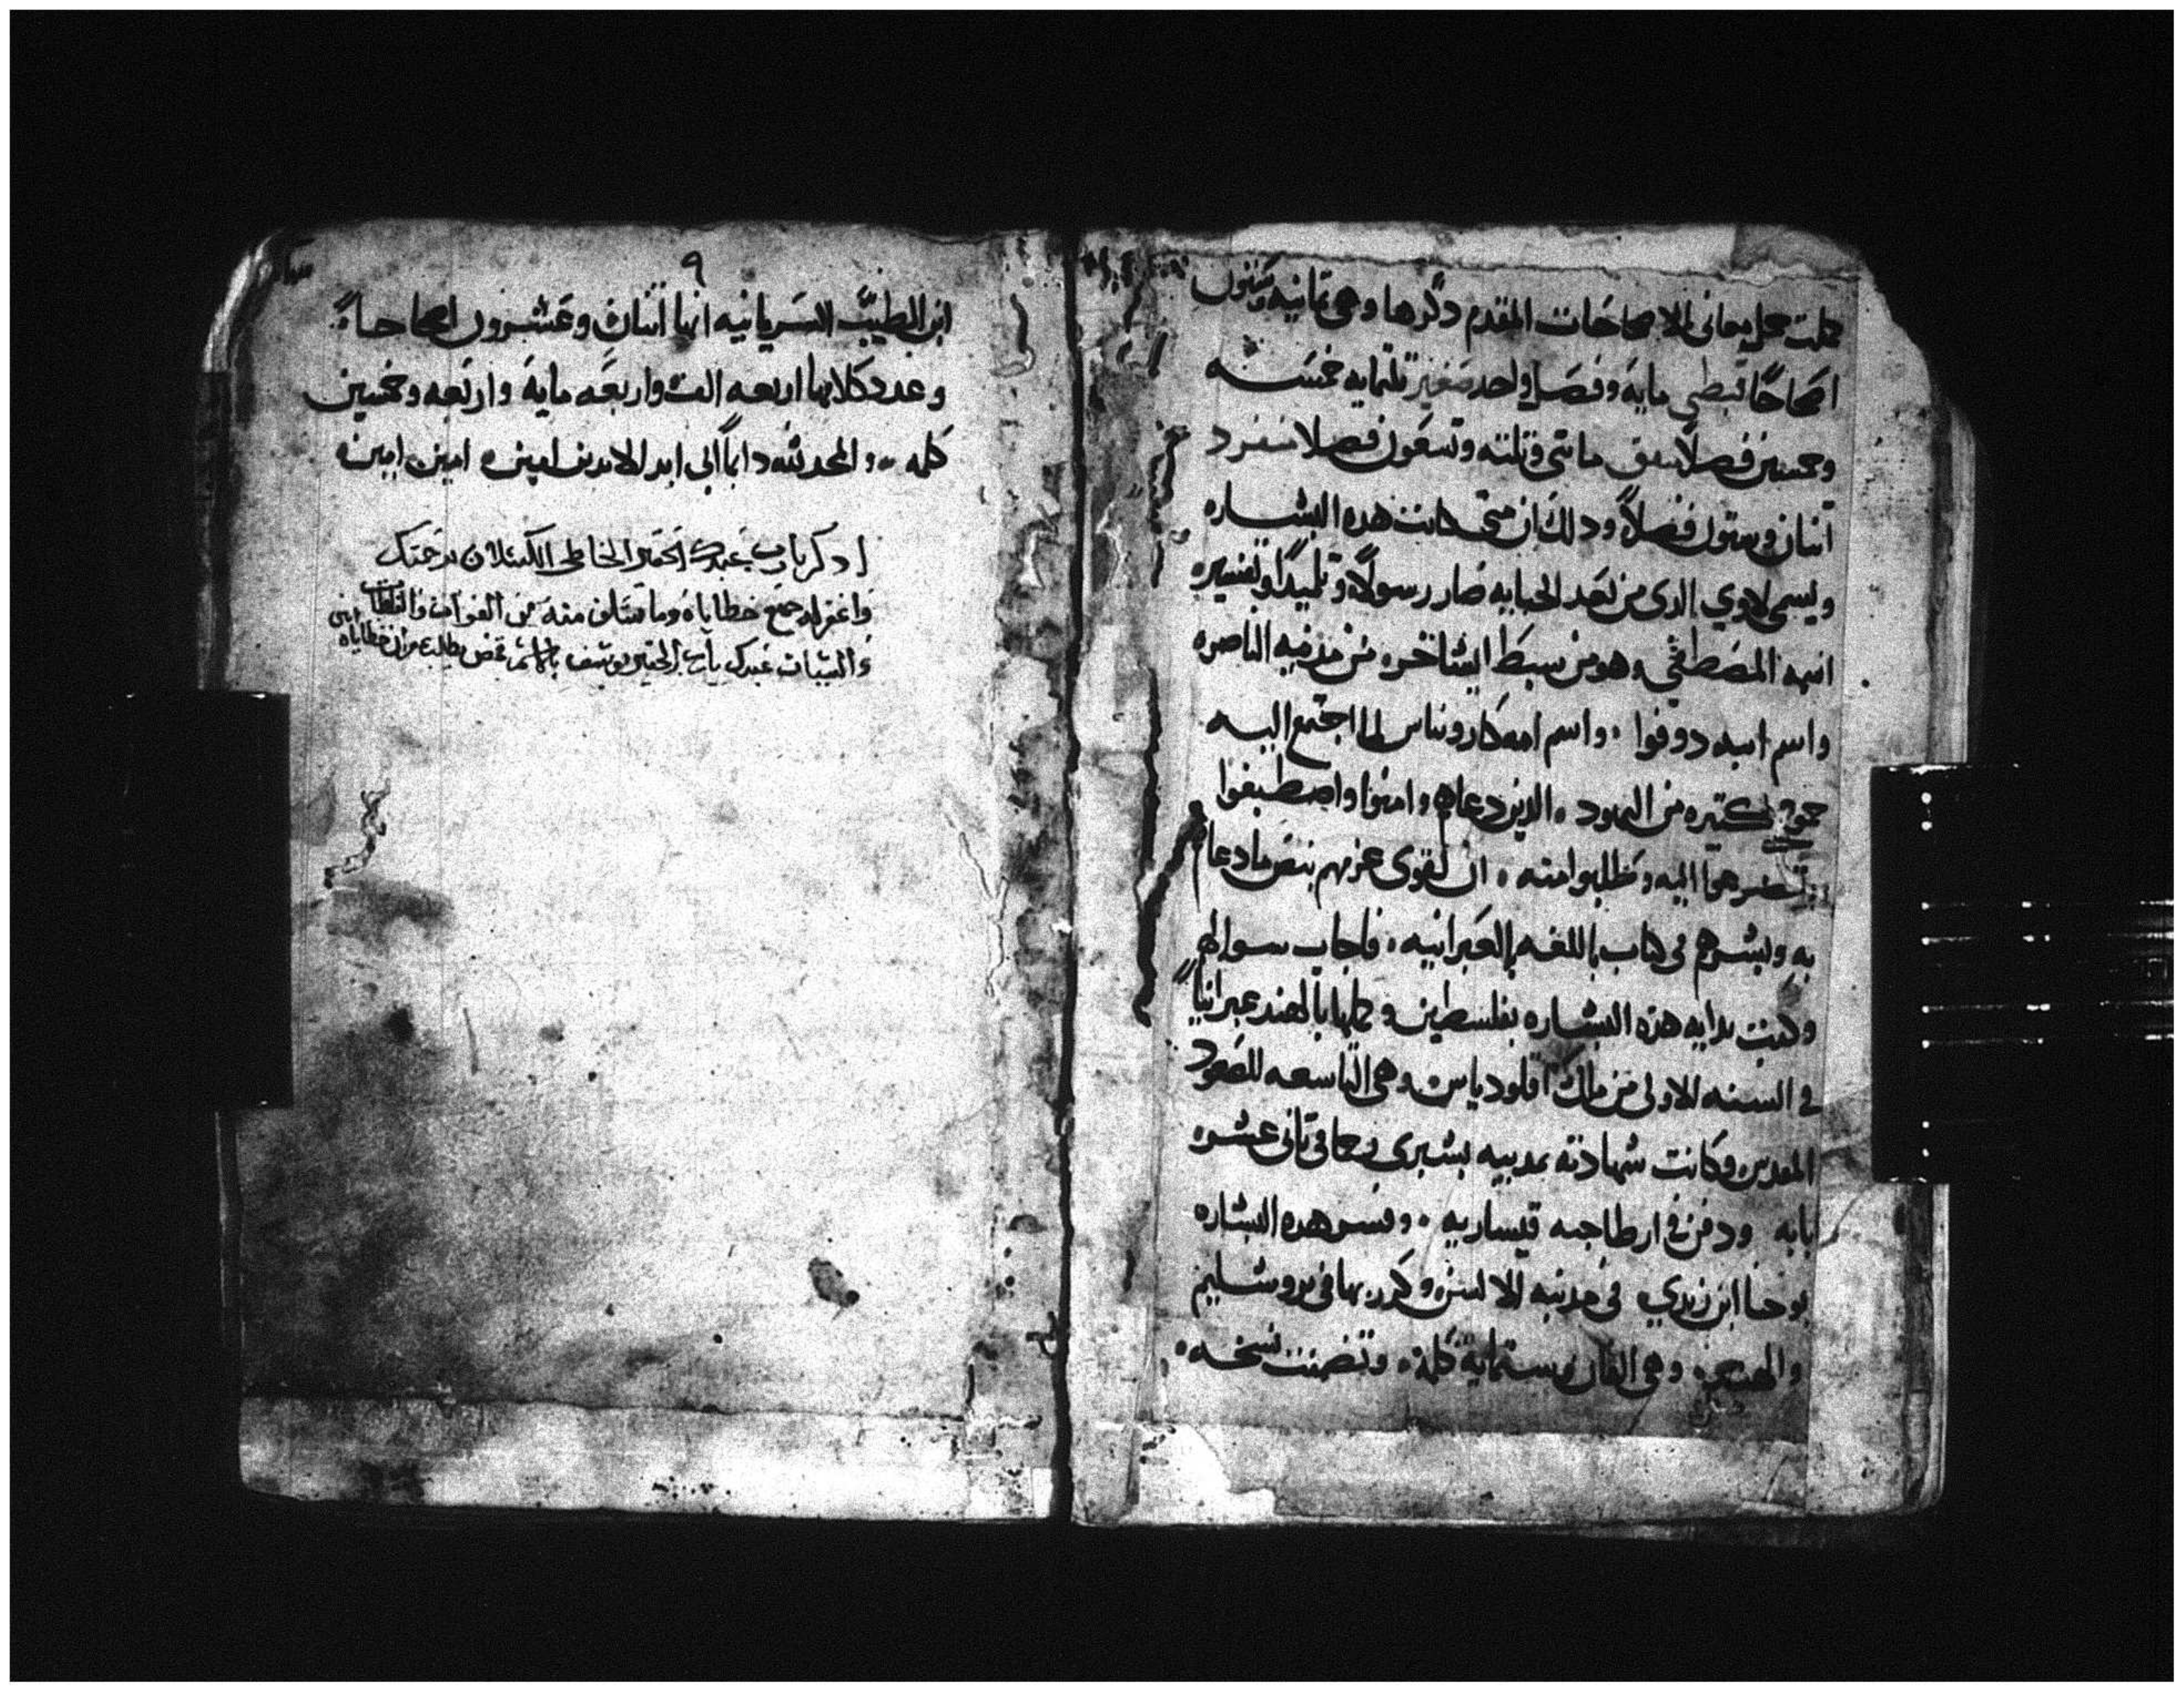 جملت جمل معانى الاصحاحات المقدم دكرها وهى تمانيه وستون
اصحاحًا قبطى مايه وفصل واحد صغير تلتمايه خمسه
وخمسين فصلا متفق مايتى وتلته وتسعون فصلا منفرد
اتنان وستون فصلاً ودلك ان متى كاتب هده البشاره
ويسمى لاوي الدى من بعد الجبايه صار رسولاً وتلميدًا وتفسير
اسمه المصطفى وهو من سبط ايشاخر من مدينه الناصره
واسم ابيه دوقوا واسم امه كاروتياس لما اجتمع اليه
كتيره من اليهود الدين دعاهم وامنوا واصطبغوا
اليه وطلبوا منه ان يقوى عزمهم بنص ما دعاهم
به وبشرهم فى كتاب باللغه العبرانيه فاجاب سوالهم
وكتب بدايه هذه البشاره بفلسطين وكملها بالهند عبرانياً
فى السنه الاولى من ملك اقلودياس وهى التاسعه للصعود
المقدس وكانت شهادته بمدينه بشبرى فى تانى عشر
بابه ودفن فى ارطاجنه قيساريه وفسر هده البشاره
يوحنا ابن زبدي فى مدينه الا وكرز بها فى يروشليم
والهند وهى الفان وستمايه كلمة وتضمنت نسخه
٩
ابن الطيب السريانيه انها اتنان وعشرون اصحاحاً
وعدد كلامها اربعه الف واربعه مايه واربعه وخمسين
كلمه والمجد لله دايماً الى ابد الابدين امين امين امين
ادكر يارب عبدك الحقير الخاطى الكسلان برحمتك
واغفر له جميع خطاياه وما سلف منه من الهفوات والغلطات
والسيات عبدك يارب الحقير يوسف